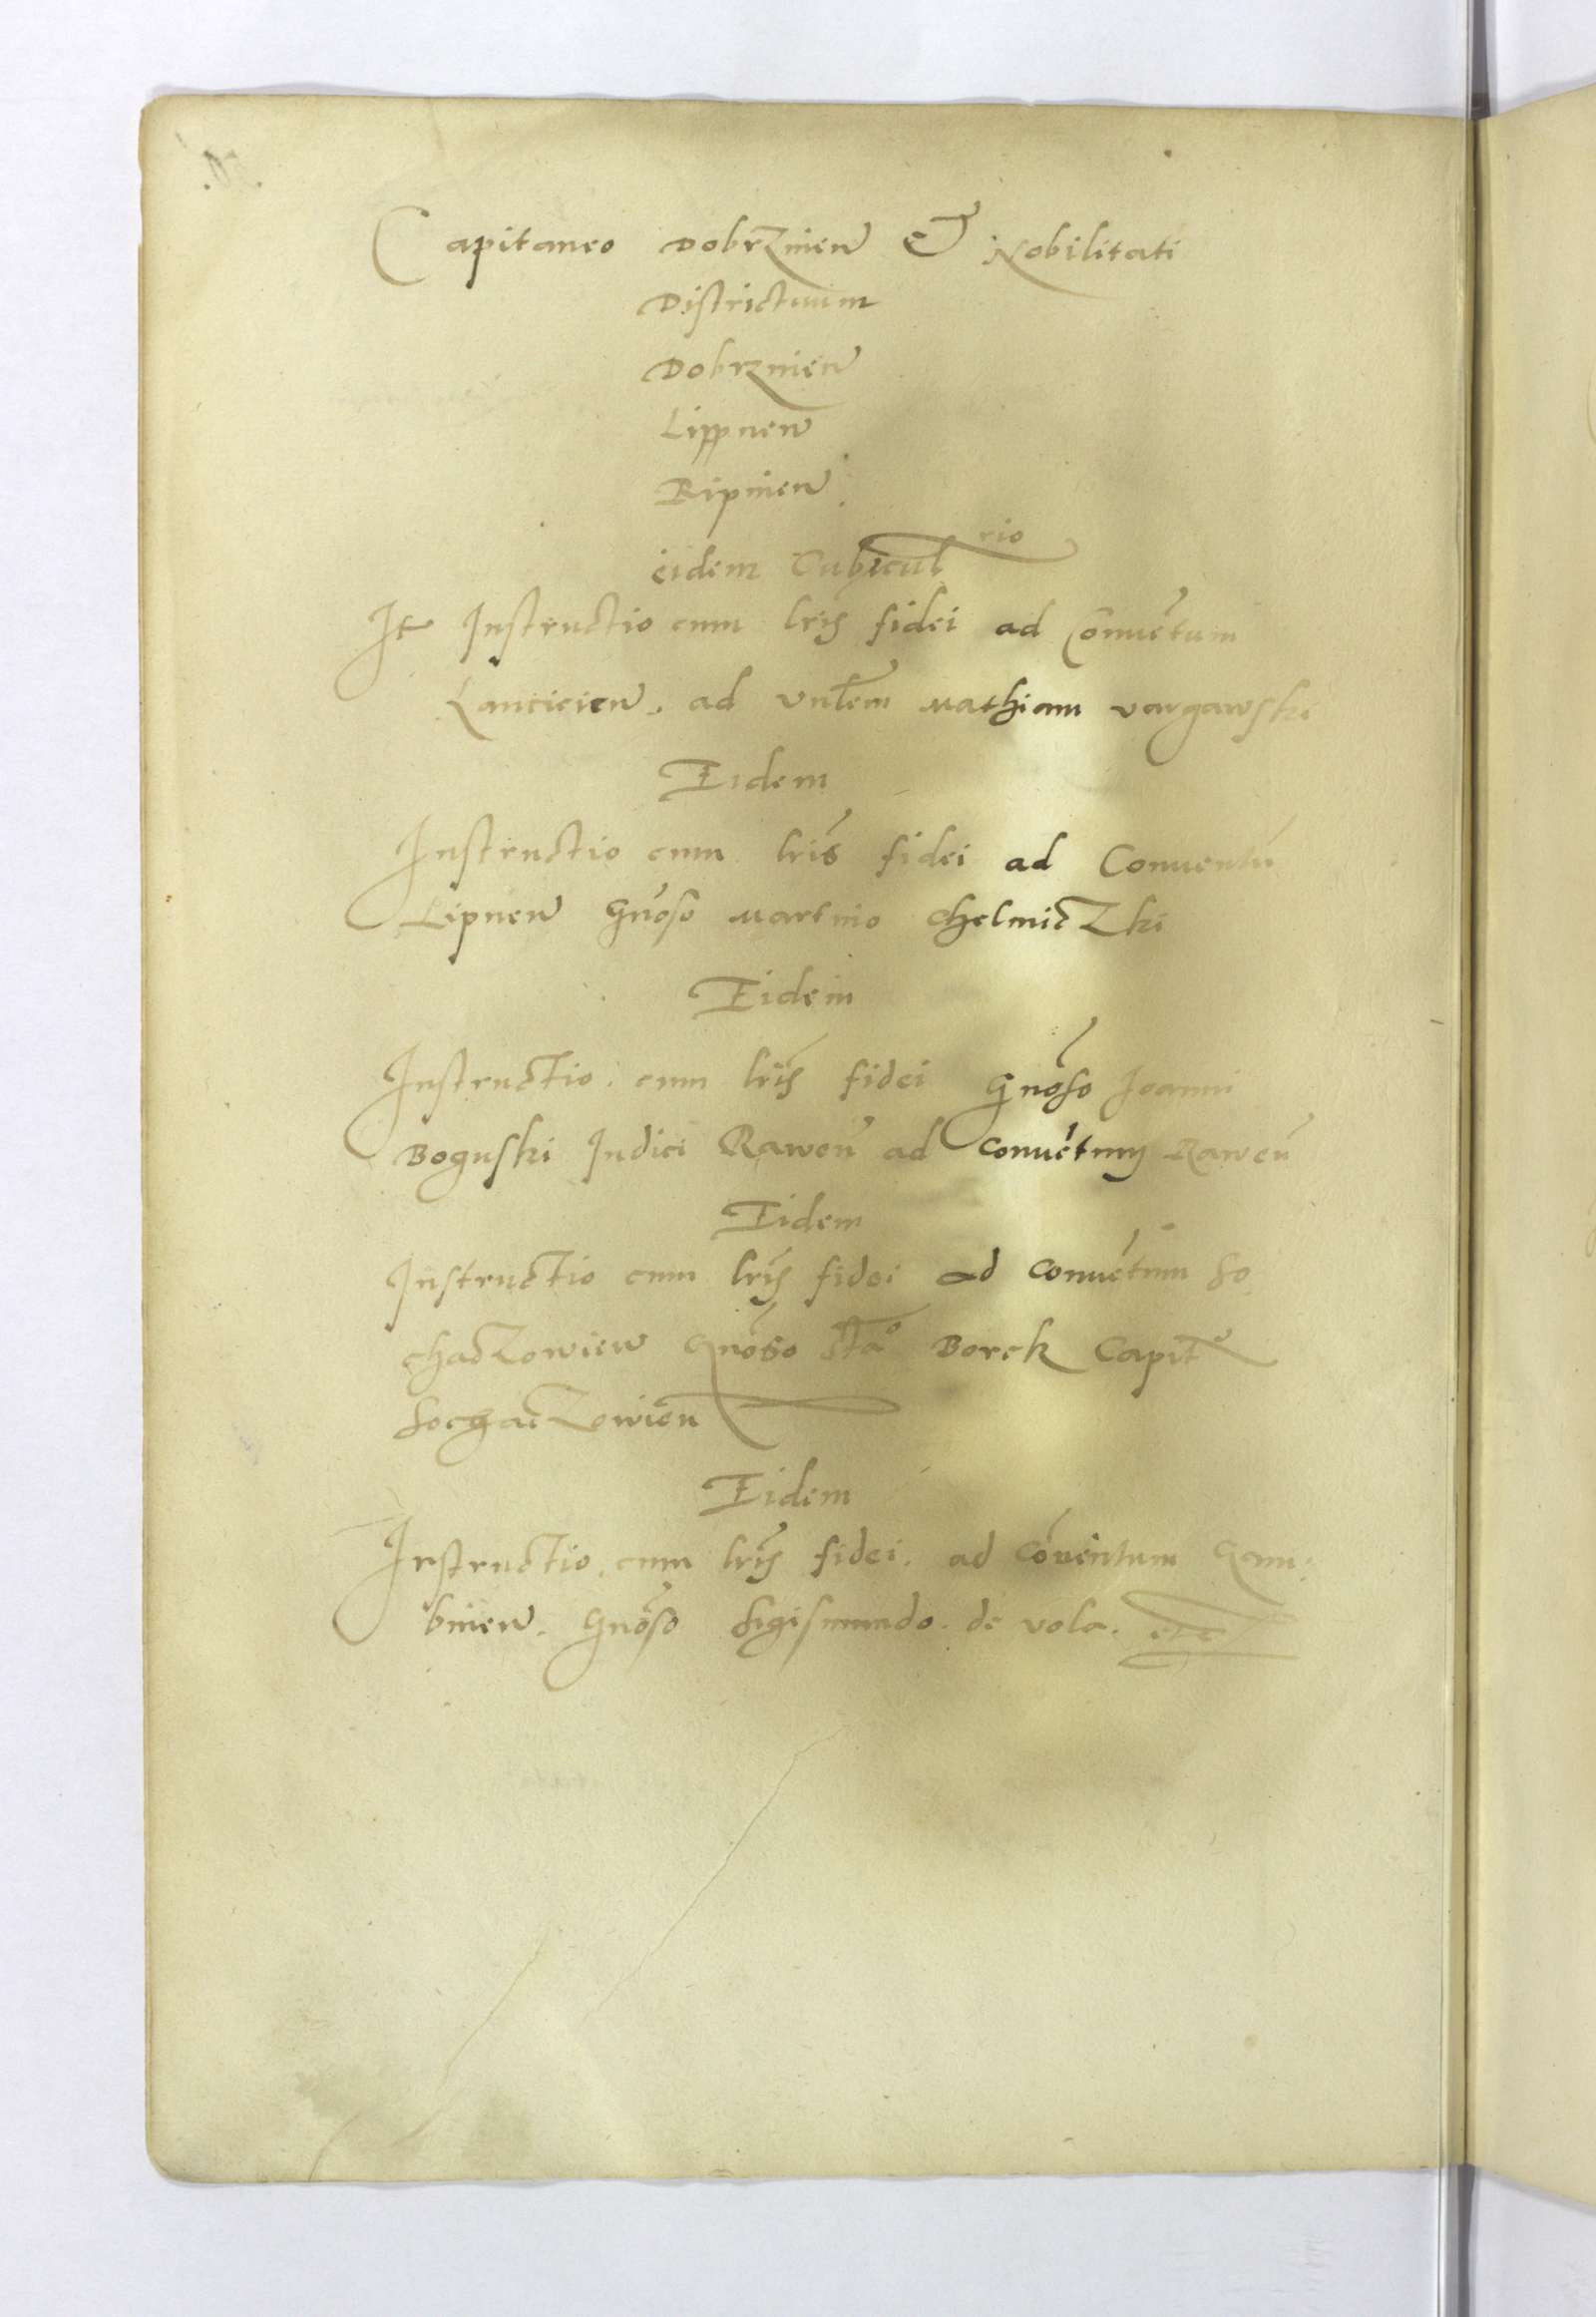 Capitaneo Dobrznien̄ Et Nobilitati
Districtuum
Dobrznien̄
Lippnen̄
Ripinen̄
eidem Cubicul rio
It Instructio cum lris fidei ad Conuētum
Lanciciен̄. ad vnlem Mathiam vargawski
Eidem
Instructio cum lris fidei ad Conuentū
Lipnen̄ Gnōso Martino Chelmiczki
Eidem
Instructio cum lris fidei Gnōso Joanni
Boguski Judici Rawen̄ ad Conuētum Rawen̄
Eidem
Instructio cum lris fidei ad Conuētum So
chaczowien̄ Gnōso Stao Borek Capit
Sochaczowien̄
Eidem
Instructio cum lris fidei. ad Cōuentum Gam:
binen̄. Gnōso Sigismundo. de vola. etc